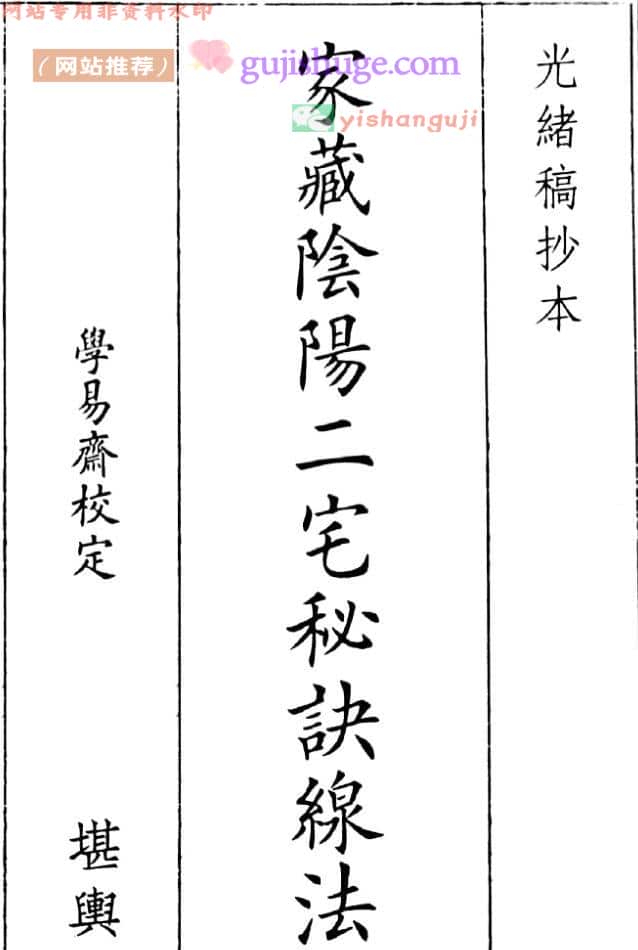 网站专用非资料水印
（网站推荐）
gujishuge.com
yishanguji
光緒稿抄本
家藏陰陽二宅秘訣線法
學易齋校定
堪輿